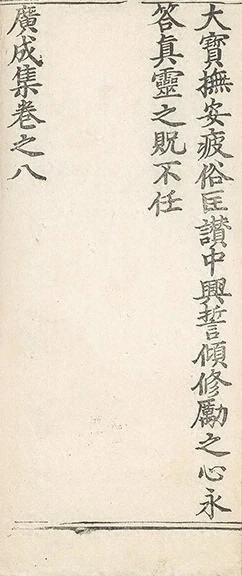 大寶撫安疲俗匡讃中興誓傾修勵之心永
答真靈之貺不任
廣成集卷之八